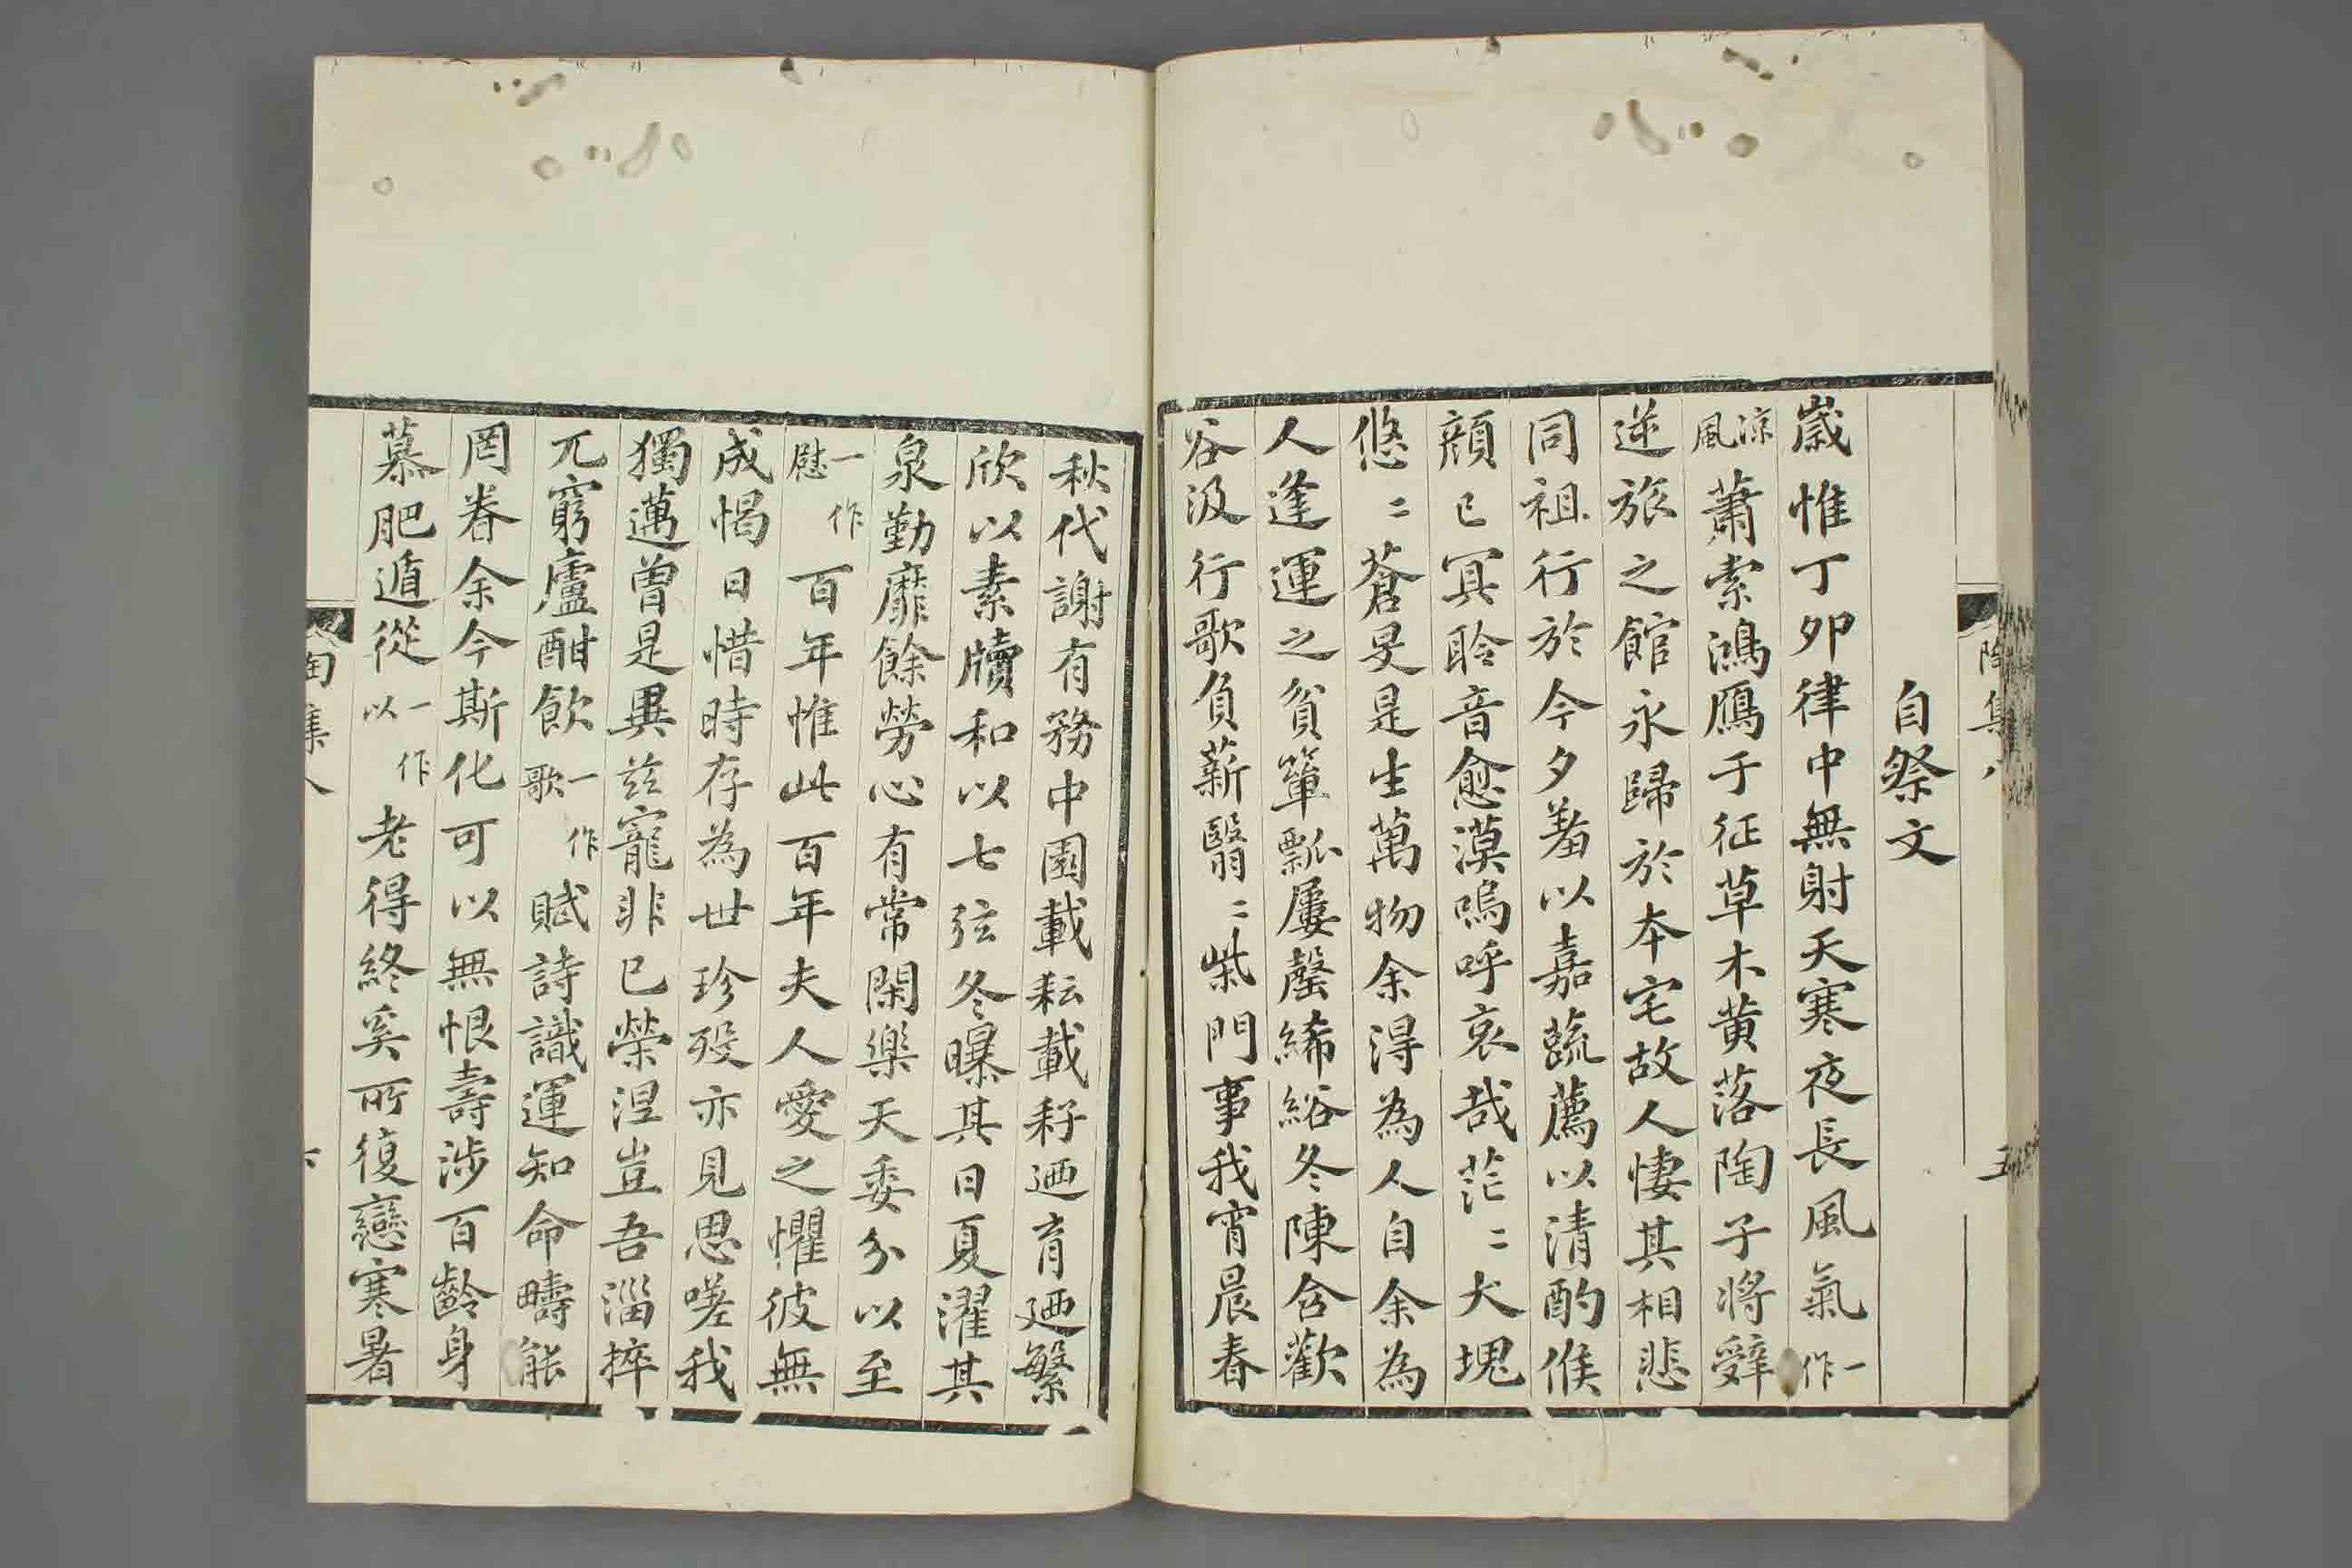 陶集八
五
自祭文
歲惟丁卯律中無射天寒夜長風氣一作
涼風蕭索鴻鴈于征草木黃落陶子將辤
逆旅之館永歸於本宅故人悽其相悲
同祖行於今夕羞以嘉蔬薦以清酌候
顔已冥聆音愈漠嗚呼哀哉茫〻大塊
悠〻蒼旻是生萬物余得為人自余為
人逢運之貧簞瓢屢罄絺綌冬陳含歡
谷汲行歌負薪翳〻柴門事我宵晨春
秋代謝有務中園載耘載耔迺育迺繁
欣以素牘和以七弦冬曝其日夏濯其
泉勤靡餘勞心有常閑樂天委分以至
一作慰百年惟此百年夫人愛之懼彼無
成愒日惜時存為世珍歿亦見思嗟我
獨邁曾是異茲寵非已榮涅豈吾淄捽
兀窮廬酣飲一作歌賦詩識運知命疇能
罔眷余今斯化可以無恨壽涉百齡身
慕肥遁從一作以老得終奚所復戀寒暑
陶集八
六